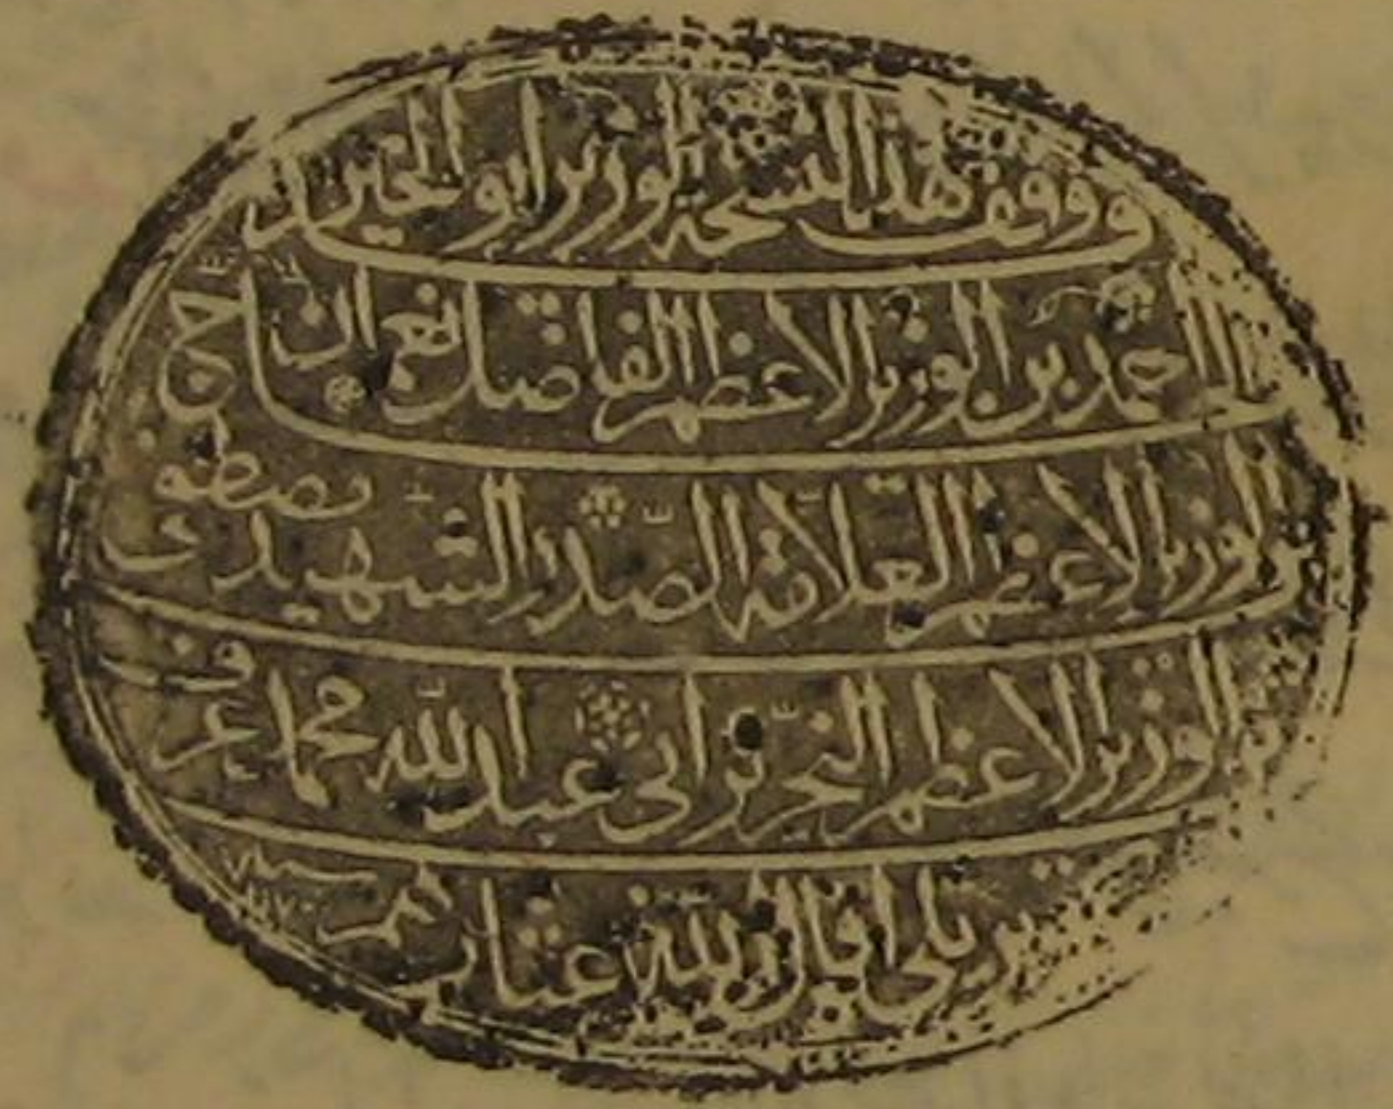 و وقف هذا النسخة الوزير ابو الخير
الحاج احمد بن الوزير الاعظم الفاضل نعمان
بن الوزير الاعظم العلامة الصدر الشهيد مصطفى
بن الوزير الاعظم النحرير ابى عبد الله محمد عرف
بكوپريلى اقال الله عثارهم